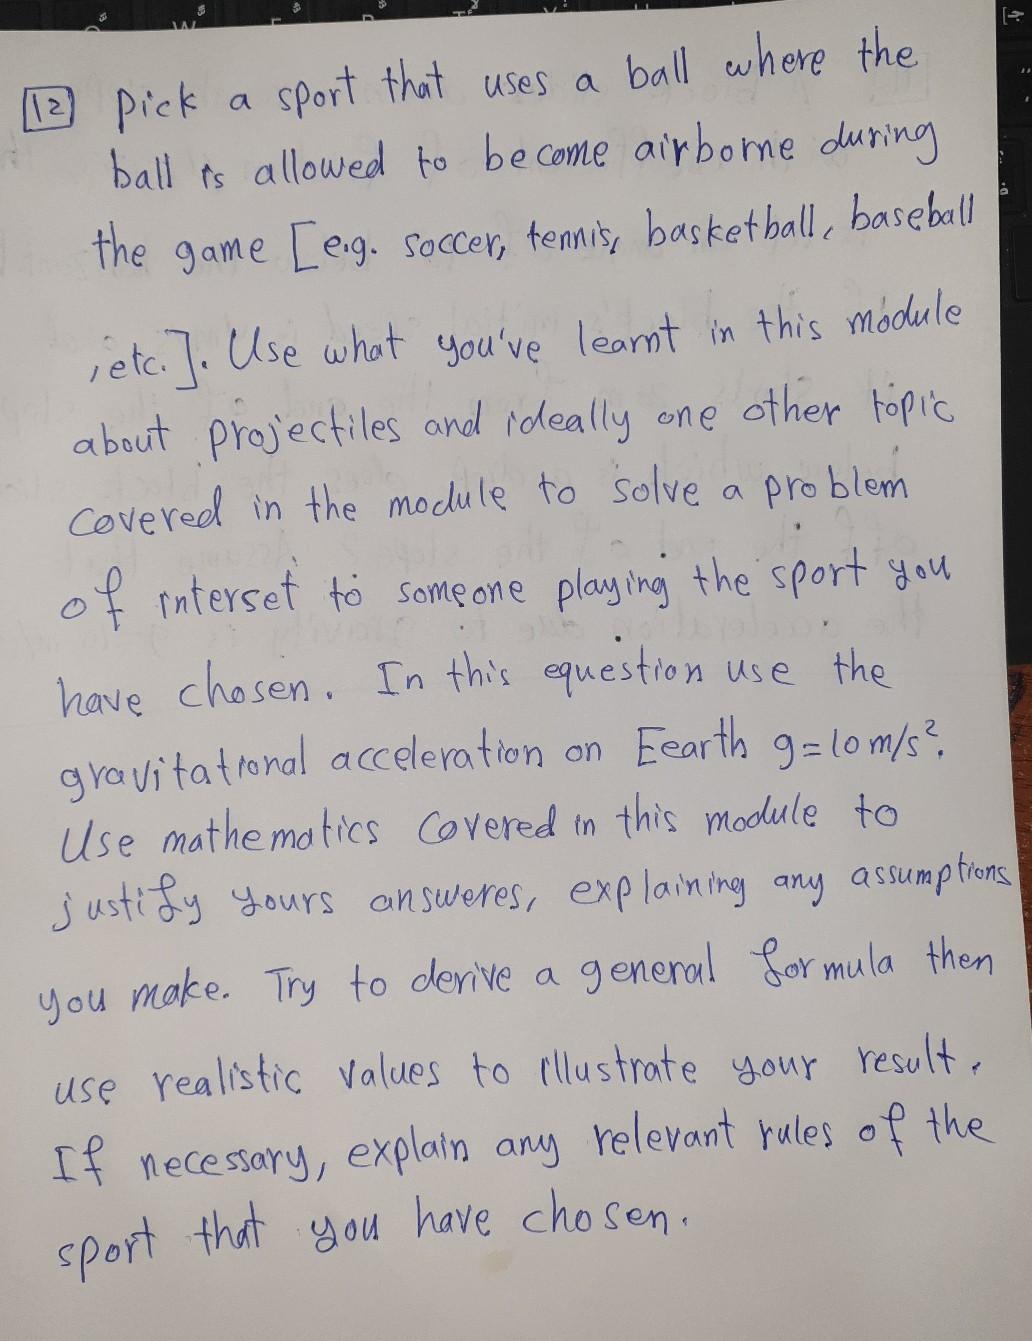 12 pick a sport that uses a ball where the
ball is allowed to become airborne during
the game [e.g. soccer, tennis, basketball, baseball
, etc.]. Use what you've learnt in this module
about projectiles and ideally one other topic
covered in the module to solve a problem
of interset to someone playing the sport you
have chosen. In this equestion use the
gravitational acceleration on Eearth g=10m/s².
Use mathematics Covered in this module to
justify yours answeres, explaining any assumptions
you make. Try to derive a general formula then
use realistic values to illustrate your result.
If necessary, explain any relevant rules of the
sport that you have chosen.